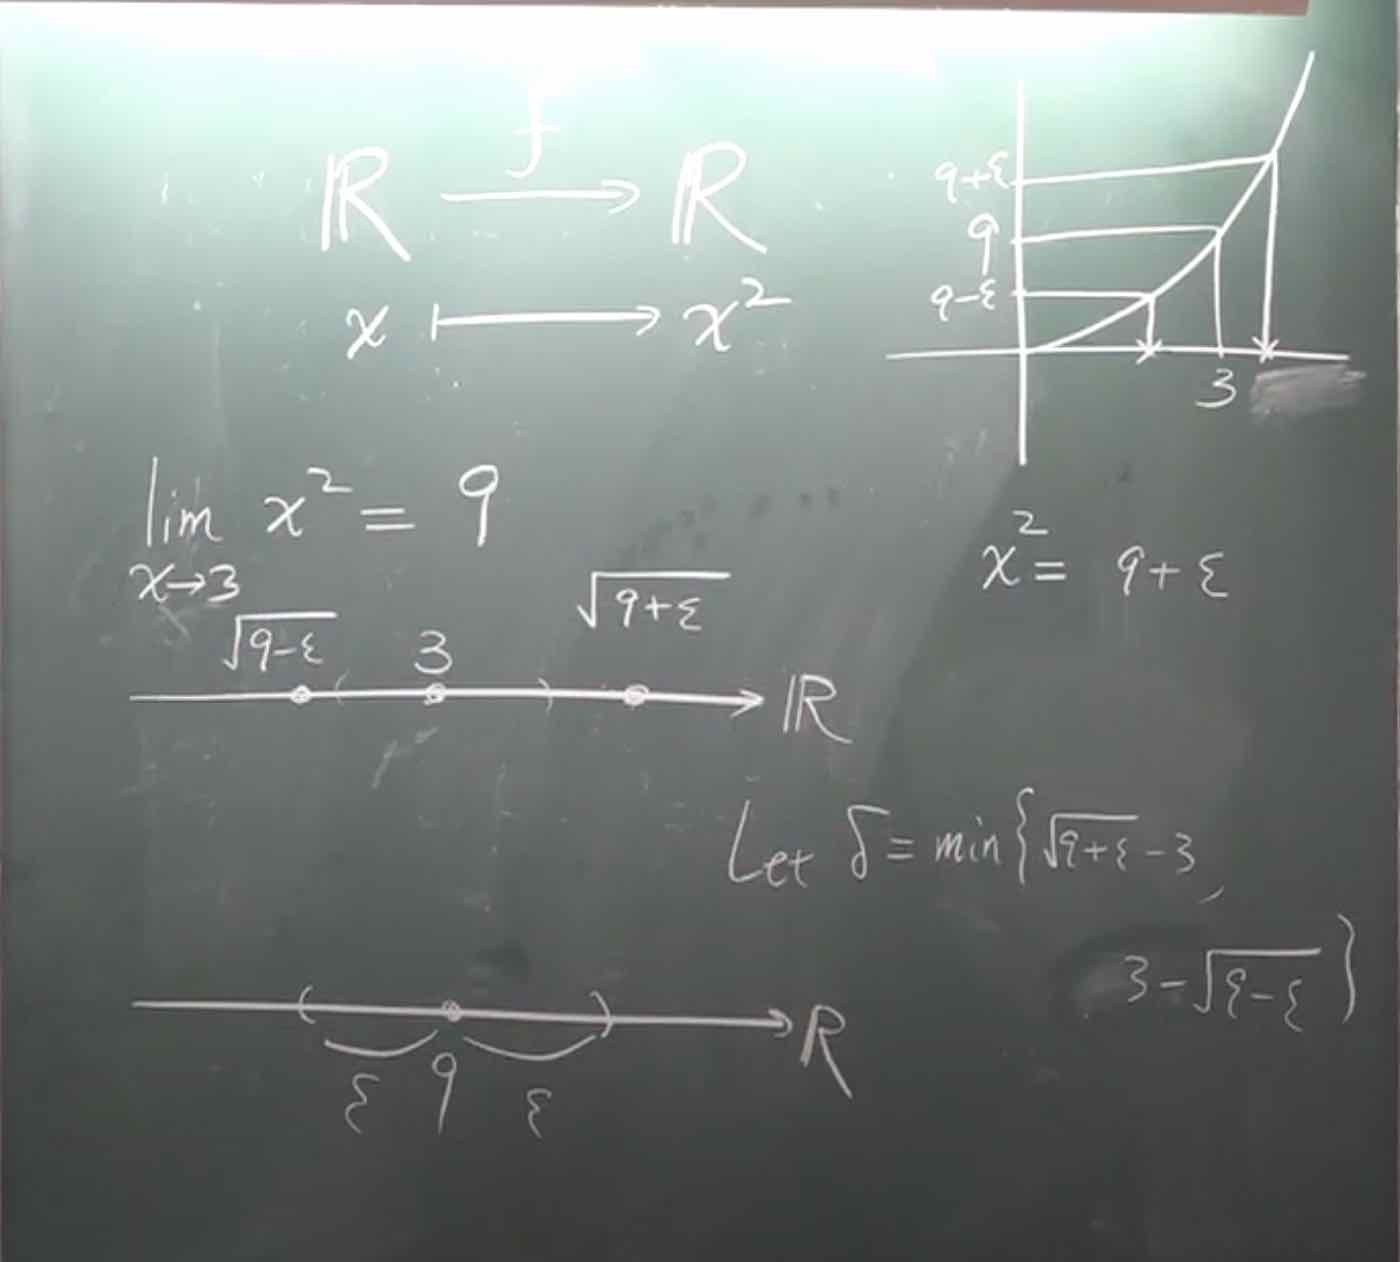 f
ℝ ⟶ ℝ
x ⟼ x²
9+ε
9
9-ε
3
lim x² = 9
x→3
x² = 9+ε
√(9-ε) 3 √(9+ε)
ℝ
Let δ = min{√(9+ε) - 3,
3 - √(9-ε)}
( )
ℝ
ε 9 ε